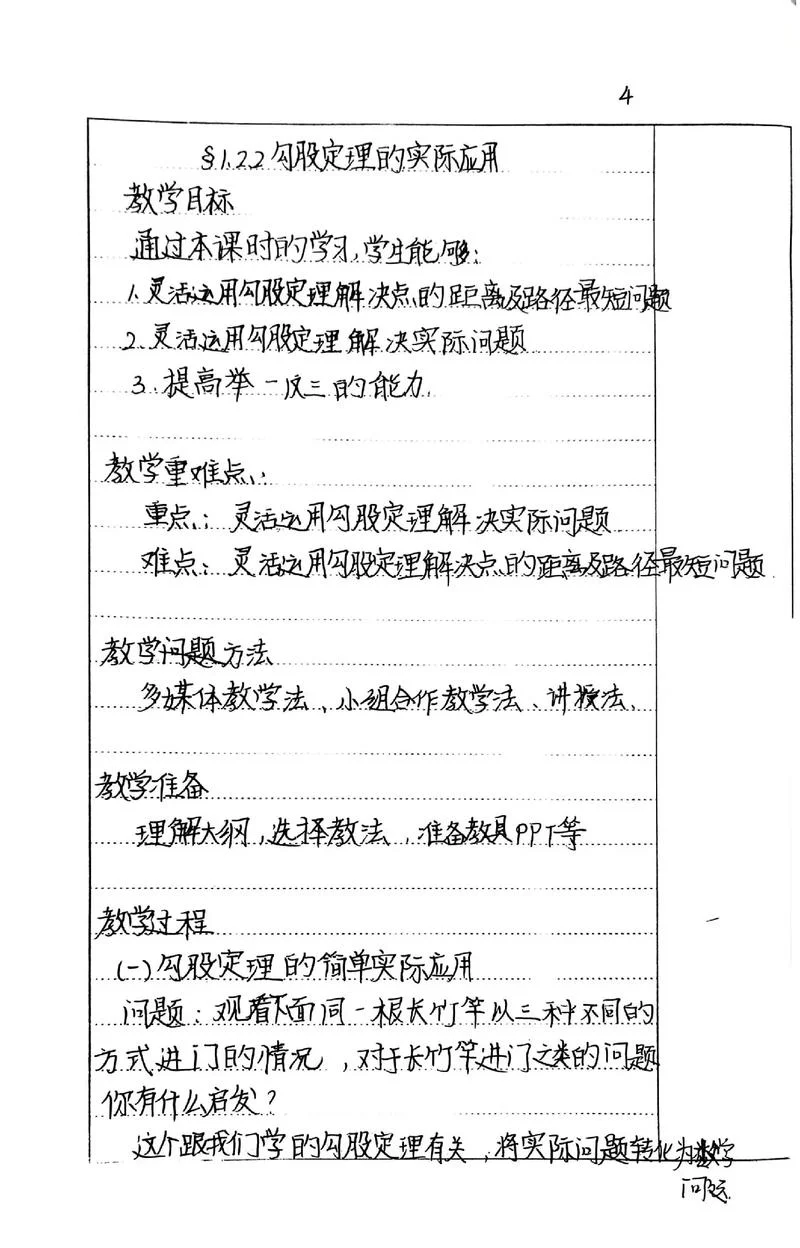 4
§1.2.2 勾股定理的实际应用
教学目标
通过本课时的学习,学生能够:
1.灵活运用勾股定理解决点的距离及路径最短问题
2.灵活运用勾股定理解决实际问题
3.提高举一反三的能力.
教学重难点:
重点:灵活运用勾股定理解决实际问题
难点:灵活运用勾股定理解决点的距离及路径最短问题
教学问题方法
多媒体教学法、小组合作教学法、讲授法.
教学准备
理解大纲,选择教法,准备教具PPT等
教学过程
(一)勾股定理的简单实际应用
问题:观看下面同一根长竹竿以三种不同的
方式进门的情况,对于长竹竿进门之类的问题
你有什么启发?
这个跟我们学的勾股定理有关,将实际问题转化为数学
问题